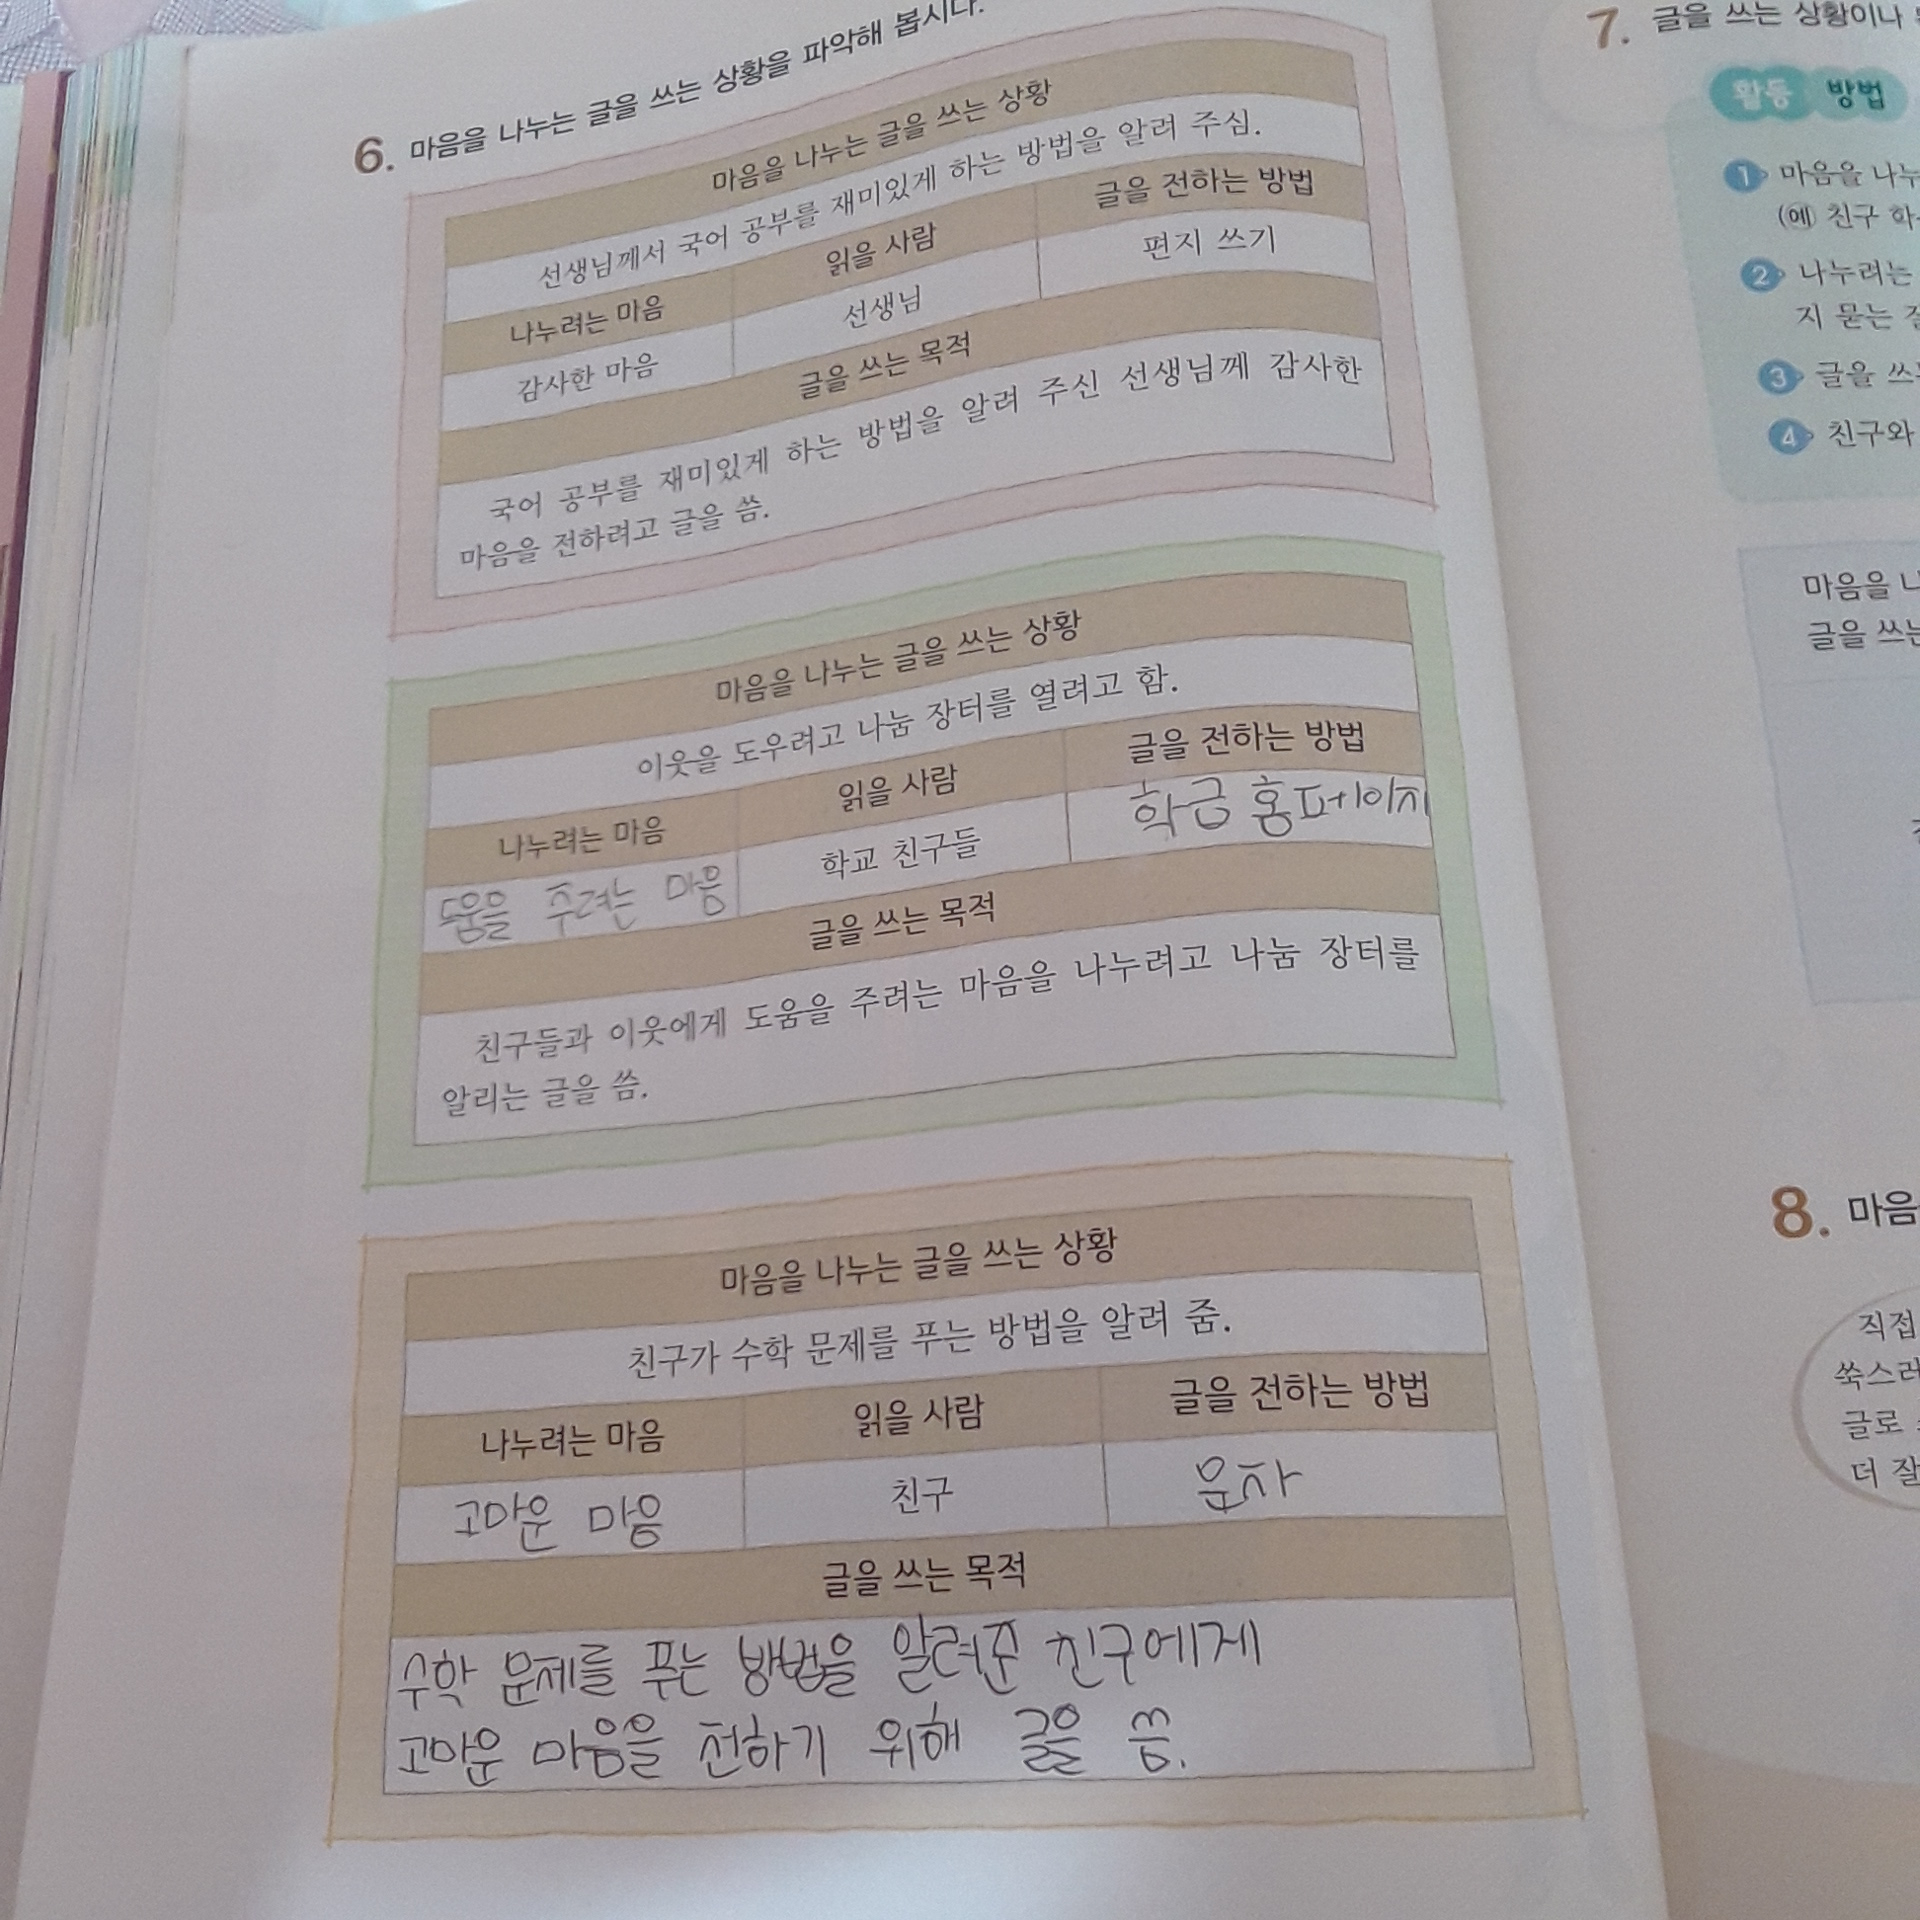 6. 마음을 나누는 글을 쓰는 상황을 파악해 봅시다.
마음을 나누는 글을 쓰는 상황
선생님께서 국어 공부를 재미있게 하는 방법을 알려 주심.
나누려는 마음 읽을 사람 글을 전하는 방법
감사한 마음 선생님 편지 쓰기
글을 쓰는 목적
국어 공부를 재미있게 하는 방법을 알려 주신 선생님께 감사한
마음을 전하려고 글을 씀.
마음을 나누는 글을 쓰는 상황
이웃을 도우려고 나눔 장터를 열려고 함.
나누려는 마음 읽을 사람 글을 전하는 방법
도움을 주려는 마음 학교 친구들 학급 홈페이지
글을 쓰는 목적
친구들과 이웃에게 도움을 주려는 마음을 나누려고 나눔 장터를
알리는 글을 씀.
마음을 나누는 글을 쓰는 상황
친구가 수학 문제를 푸는 방법을 알려 줌.
나누려는 마음 읽을 사람 글을 전하는 방법
고마운 마음 친구 문자
글을 쓰는 목적
수학 문제를 푸는 방법을 알려준 친구에게
고마운 마음을 전하기 위해 글을 씀.
7. 글을 쓰는 상황이나
활동 방법
1 마음을 나누
(예 친구 학
2 나누려는
지 묻는
3 글을 쓰
4 친구와
마음을
글을 쓰는
8. 마음
직접
쑥스러
글로
더 잘